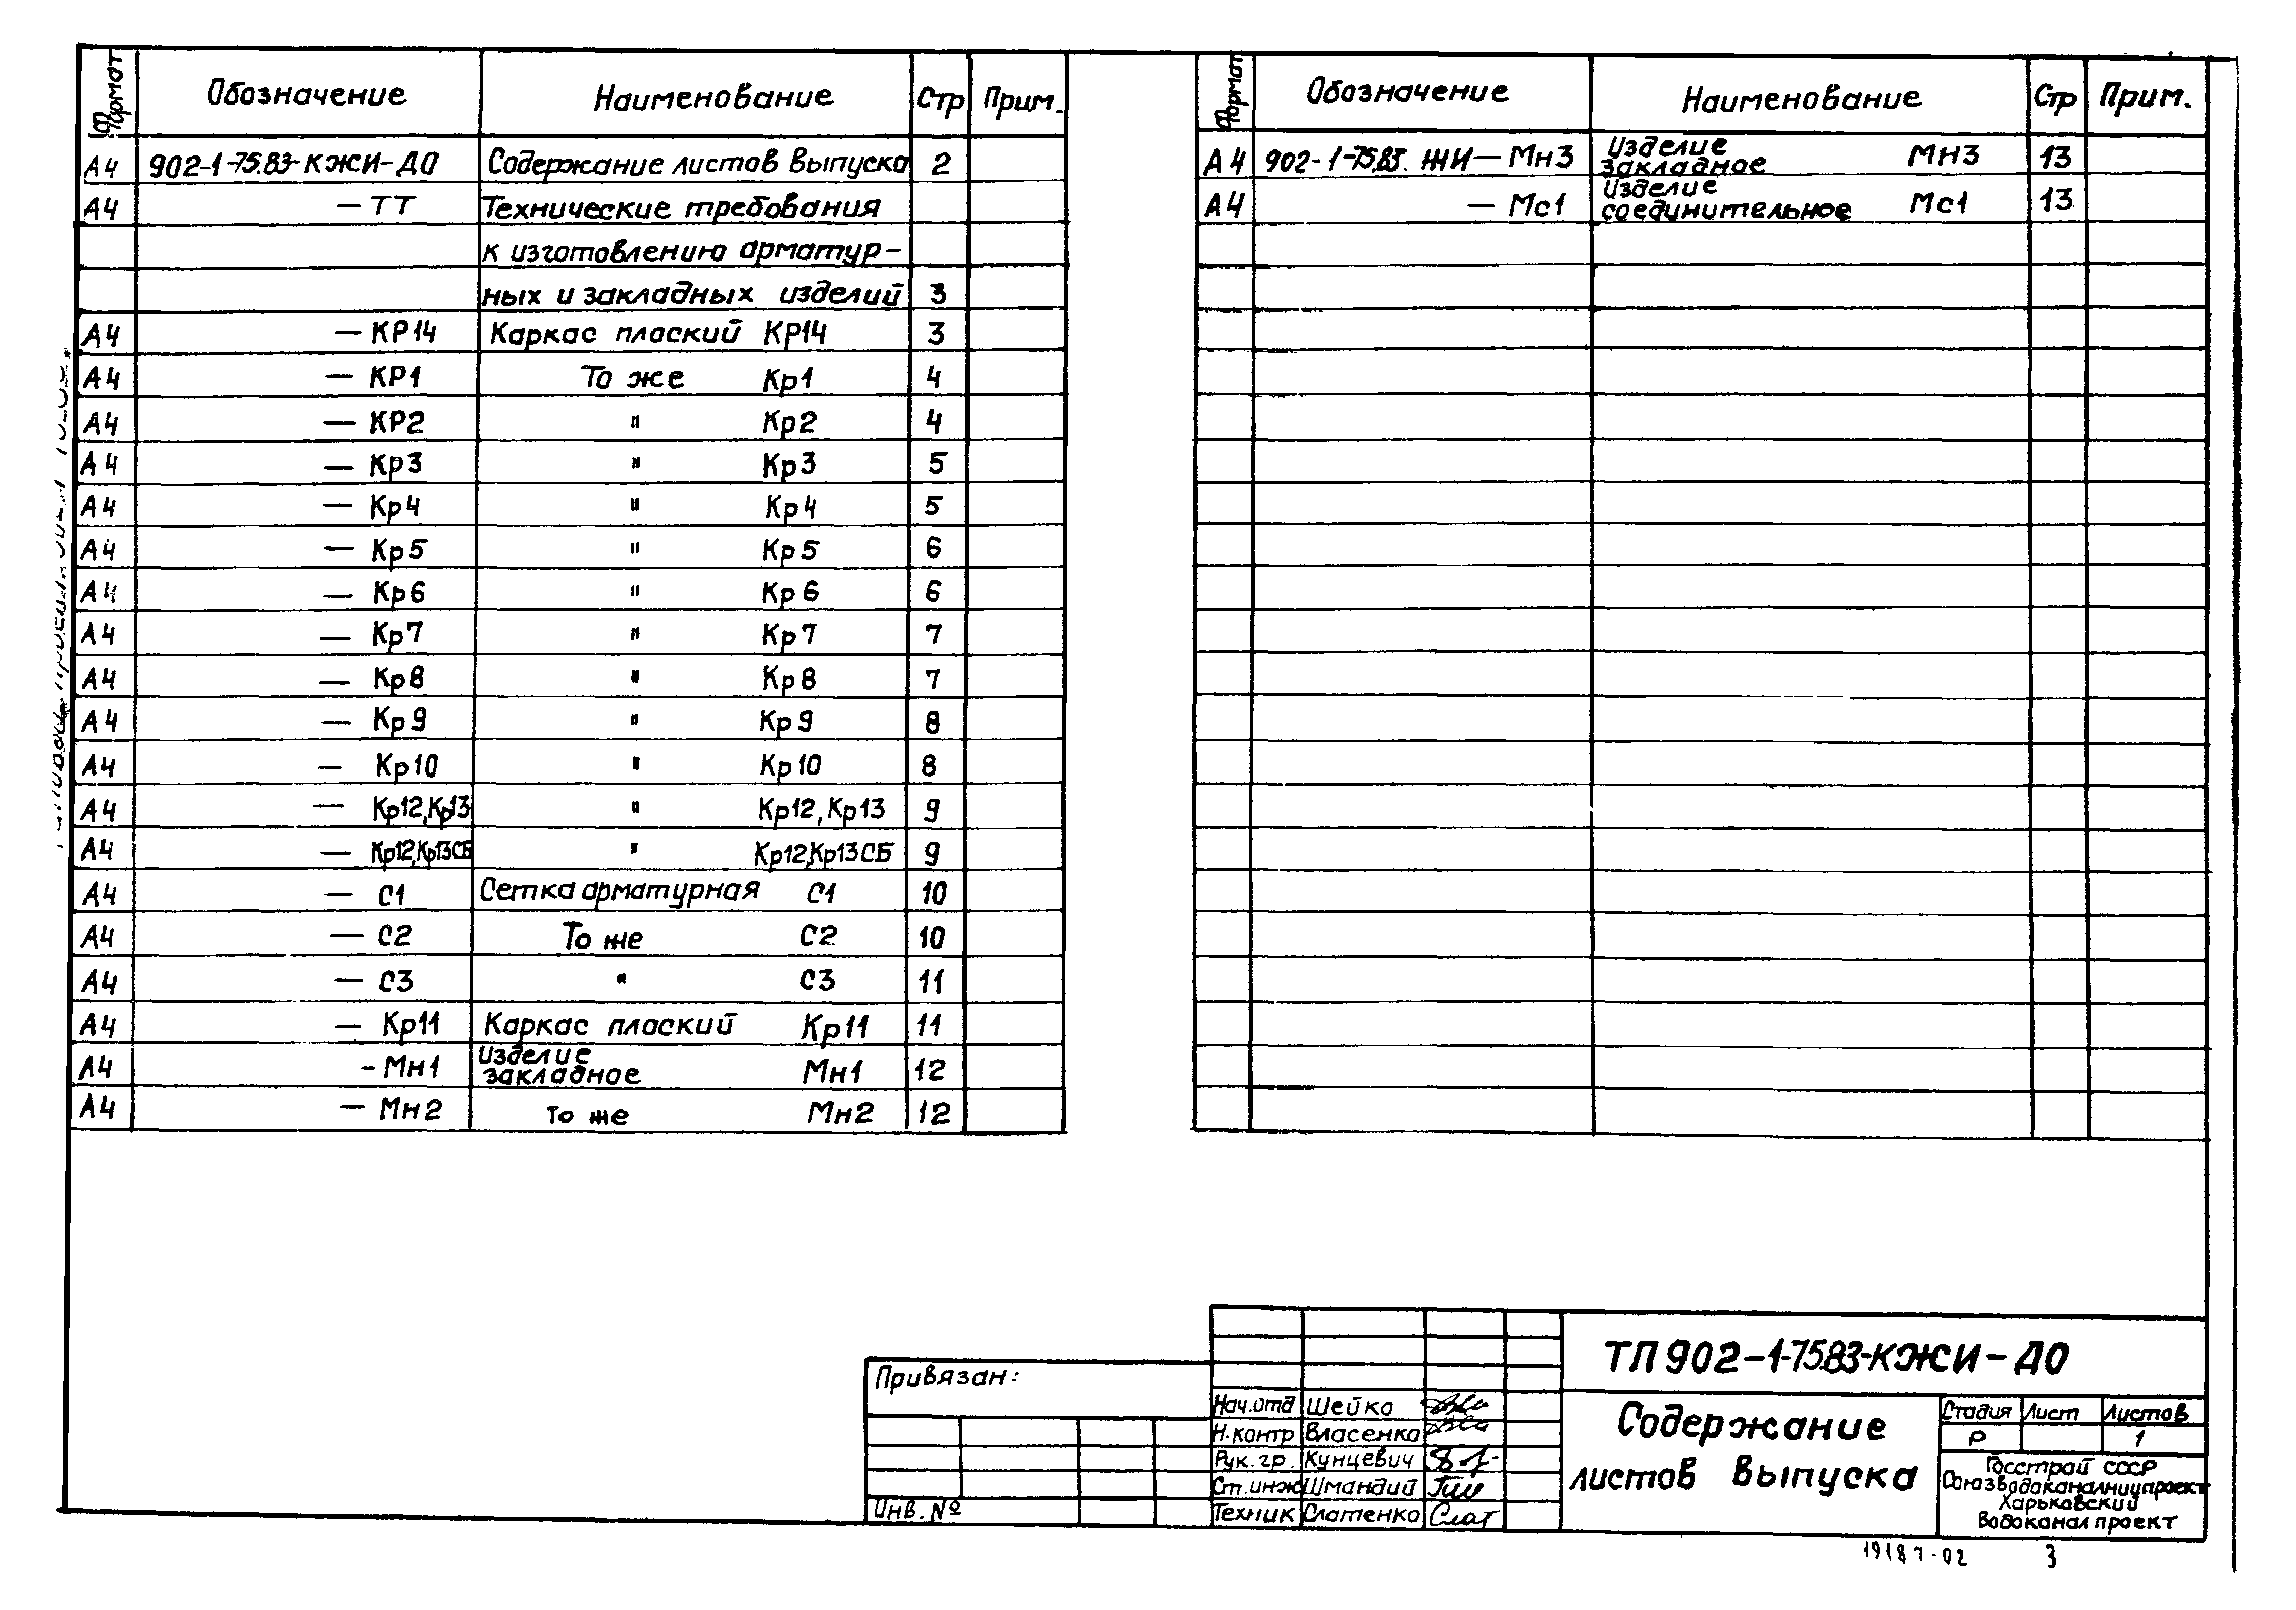 Формат Обозначение Наименование Стр Прим.
А4 902-1-75.83-КЖИ-ДО Содержание листов выпуска 2
А4 -ТТ Технические требования
к изготовлению арматур-
ных и закладных изделий 3
А4 -КР14 Каркас плоский КР14 3
А4 - КР1 То же Кр1 4
А4 - КР2 " Кр2 4
А4 - Кр3 " Кр3 5
А4 - Кр4 " Кр4 5
А4 - Кр5 " Кр5 6
А4 - Кр6 " Кр6 6
А4 - Кр7 " Кр7 7
А4 - Кр8 " Кр8 7
А4 - Кр9 " Кр9 8
А4 - Кр10 " Кр10 8
А4 - Кр12,Кр13 " Кр12,Кр13 9
А4 - Кр12,Кр13СБ " Кр12,Кр13СБ 9
А4 - С1 Сетка арматурная С1 10
А4 - С2 То же С2 10
А4 - С3 " С3 11
А4 - Кр11 Каркас плоский Кр11 11
А4 -Мн1 Изделие
закладное Мн1 12
А4 - Мн2 то же Мн2 12
Формат Обозначение Наименование Стр Прим.
А4 902-1-75.83. ЖИ-Мн3 Изделие
закладное МН3 13
А4 - Мс1 Изделие
соединительное Мс1 13
Привязан:
Инв. №
Нач.отд Шейко
Н.контр Власенко
Рук.гр. Кунцевич
Ст.инж Шмандий
Техник Слатенко Слат
ТП902-1-75.83-КЖИ-ДО
Содержание
листов выпуска
Стадия Лист Листов
Р 1
Госстрой СССР
Союзводоканалниипроект
Харьковский
Водоканалпроект
19187-02 3